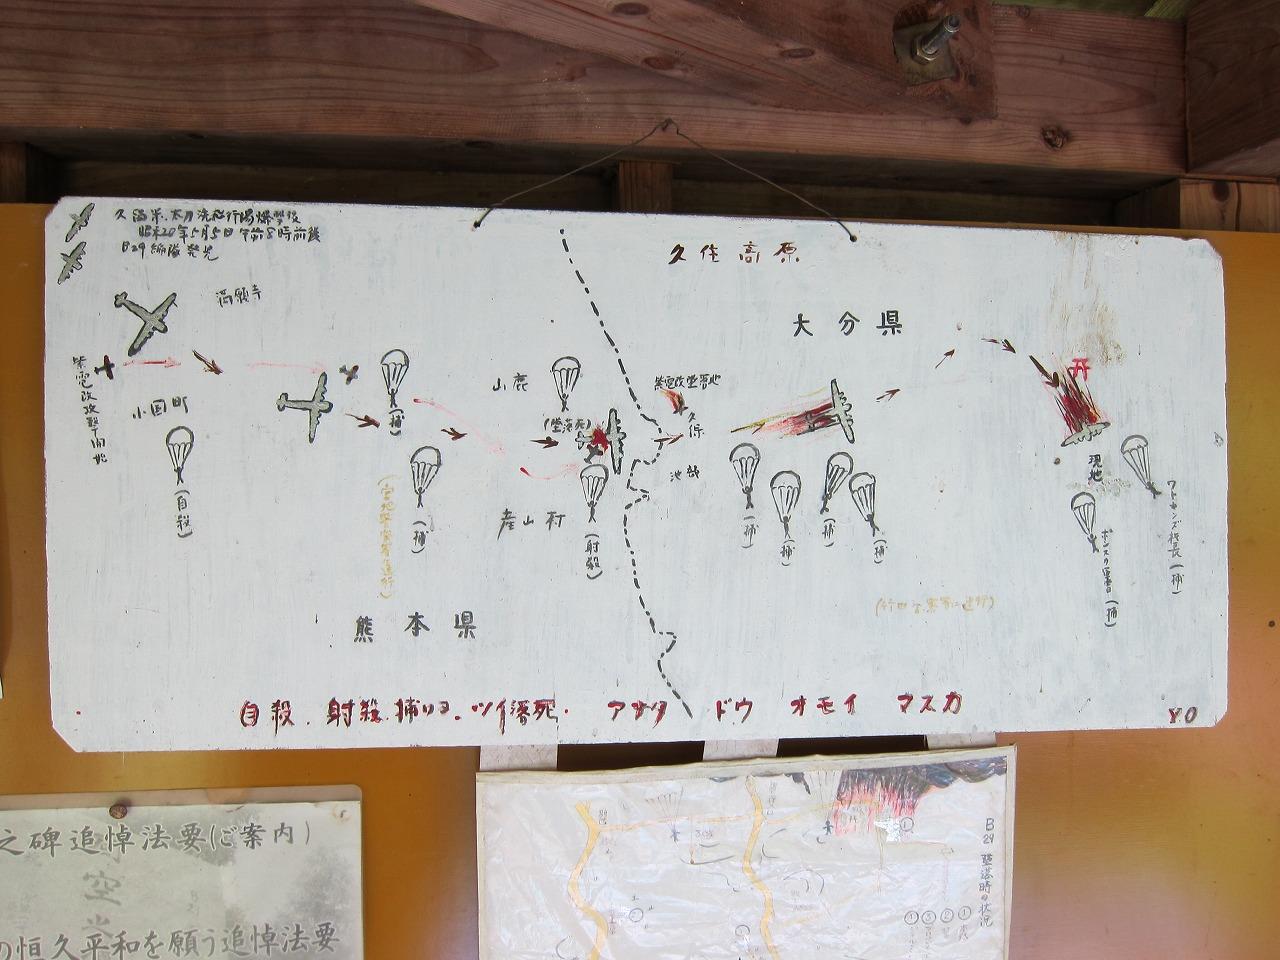 久留米、太刀洗飛行場爆撃後
昭和20年5月5日 午前8時前後
B29編隊発光
満願寺
紫電改攻撃開始
小国町
(自殺)
(捕)
(捕)
山鹿
(墜落死)
産山村
(射殺)
熊本県
久住高原
大分県
紫電改墜落地
久保
池部
(捕)
(捕)
(捕)
(捕)
現地
ワトキンズ機長(捕)
(捕)
自殺.射殺.捕リョ.ツイ落死.アナタ ドウ オモイ マスカ
YO
之碑追悼法要(ご案内)
の恒久平和を願う追悼法要
B29墜落時の状況